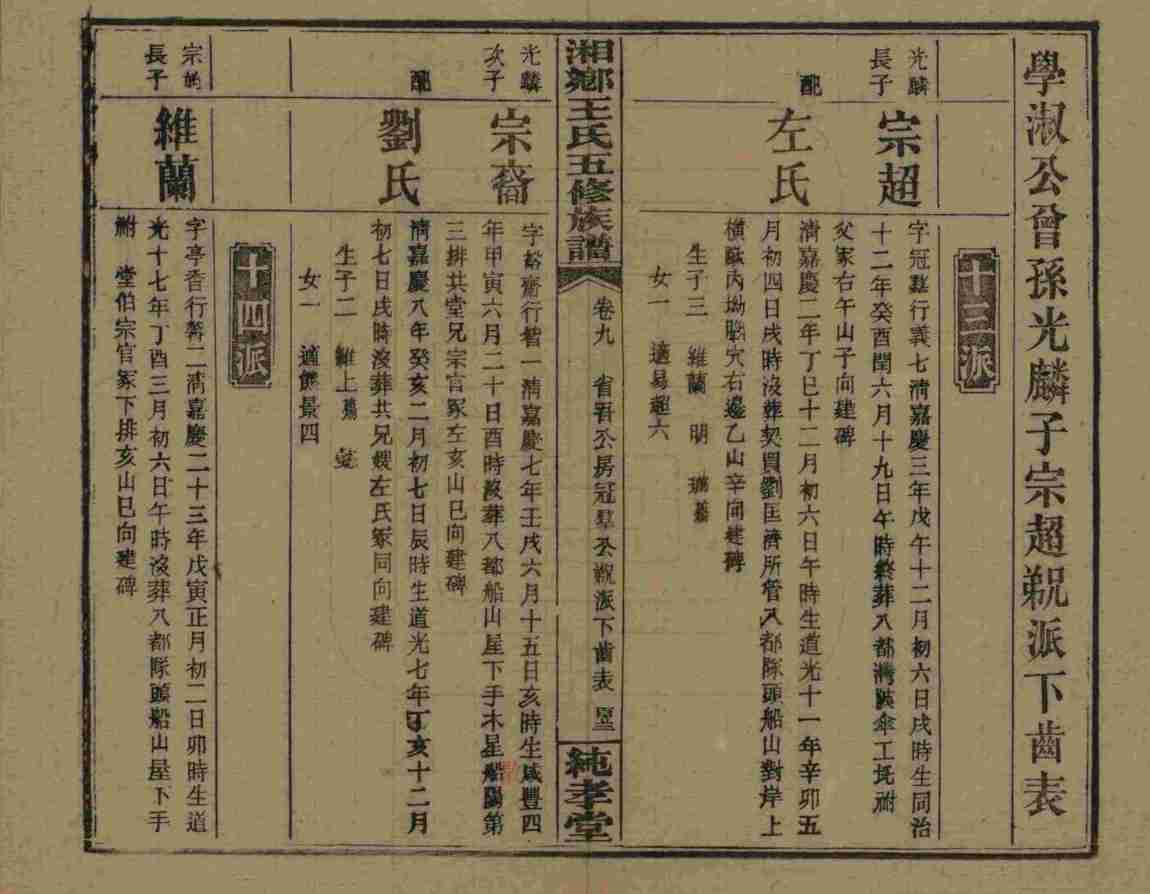 學淑公曾孫光麟子宗超派下齒表
十三派
光麟
長子
宗超
字冠羣行義七清嘉慶三年戊午十二月初六日戌時生同治
十二年癸酉閏六月十九日午時終葬八都灣陝傘工坵祔
父冢右午山子向建碑
配
左氏
清嘉慶二年丁巳十二月初六日午時生道光十一年辛卯五
月初四日戌時沒葬契買劉匡濟所管八都隊頭船山對岸上
橫陝丙坳臨穴右邊乙山辛向建碑
生子三 維蘭 明
女一 適易超六
湘鄉王氏五修族譜
卷九 省吾公房冠羣公派下齒表
純孝堂
光麟
次子
宗裔
字裕齋行楷一清嘉慶七年壬戌六月十五日亥時生咸豐四
年甲寅六月二十日酉時沒葬八都船山屋下手木星船陽第
三排共堂兄宗官冢左亥山巳向建碑
配
劉氏
清嘉慶八年癸亥二月初七日辰時生道光七年丁亥十二月
初七日戌時沒葬共兄嫂左氏冢同向建碑
生子二 維上
女一 適熊景四
十四派
長子
維蘭
字亭香行籌二清嘉慶二十三年戊寅正月初二日卯時生道
光十七年丁酉三月初六日午時沒葬八都隊頭船山屋下手
祔 堂伯宗官冢下排亥山巳向建碑